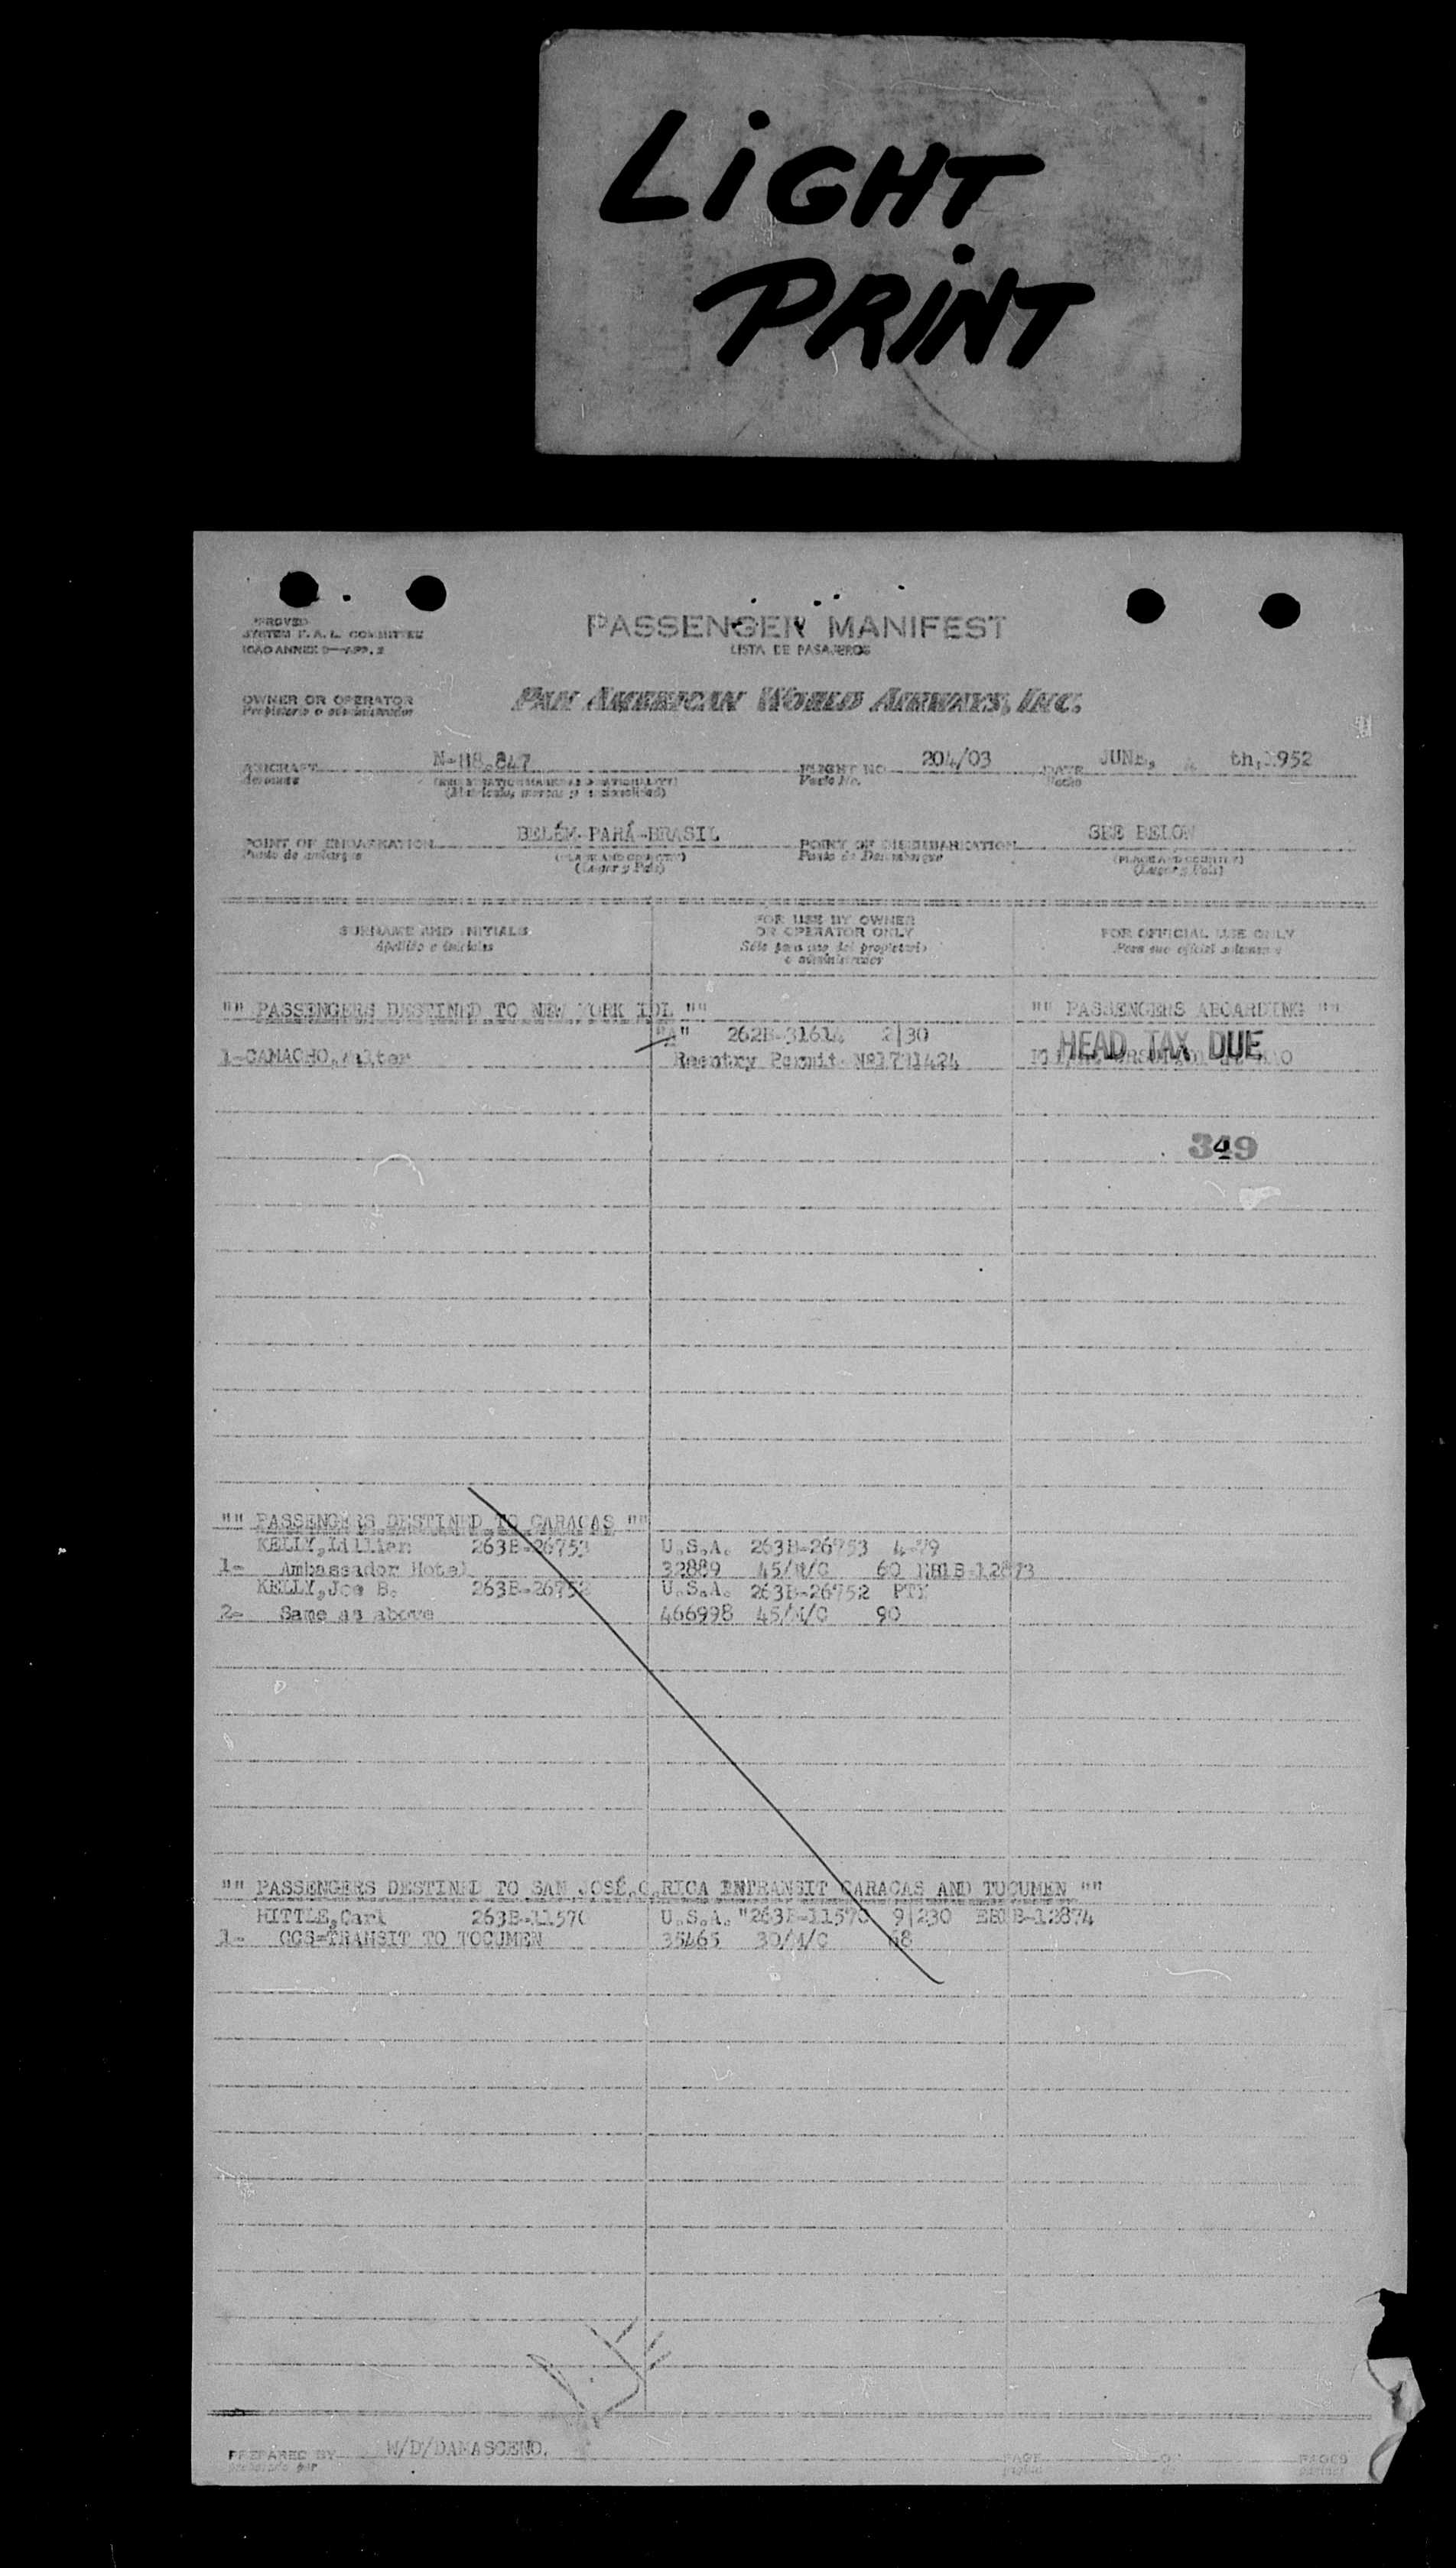 LiGHT
PRiNT
PASSENGER MANIFEST
LISTA DE PASAJEROS
SYSTEM F.A.L. COMMITTEE
ICAO ANNEX 9—APP. 2
OWNER OR OPERATOR
Propietario o administrador
PAN AMERICAN WORLD AIRWAYS, INC.
AIRCRAFT N-88.847 FLIGHT NO 204/03 DATE JUNE, th,1952
Aeronave Vuelo No. Fecha
(Matrícula, marcas y nacionalidad)
POINT OF EMBARKATION BELÉM-PARÁ-BRASIL POINT OF DISEMBARKATION SEE BELOW
Punto de embarque Punto de Desembarque
(Lugar y País) (Lugar y País)
SURNAME AND INITIALS FOR USE BY OWNER OR OPERATOR ONLY FOR OFFICIAL USE ONLY
Apellido e iniciales Sólo para uso del propietario o administrador Para uso oficial solamente
"" PASSENGERS DESTINED TO NEW YORK IDL "" "" PASSENGERS ABOARDING ""
"A" 262B-31614 2|30 HEAD TAX DUE
1-CAMACHO,Walter Reentry Permit Nº1731424
349
"" PASSENGERS DESTINED TO CARACAS ""
KELLY,Lillian 263B-26753 U.S.A. 263B-26753 4-79
1- Ambassador Hotel 32889 45/M/C 60
KELLY,Joe B. 263B-26752 U.S.A. 263B-26752 PTY
2- Same as above 466998 45/M/C 90
"" PASSENGERS DESTINED TO SAN JOSÉ,C.RICA INTRANSIT CARACAS AND TOCUMEN ""
HITTLE,Carl 263B-11570 U.S.A. "263B-11570 9|230
1- CCS=TRANSIT TO TOCUMEN 35465 30/M/C 68
PREPARED BY W/D/DAMASCENO. PAGE OF PAGES